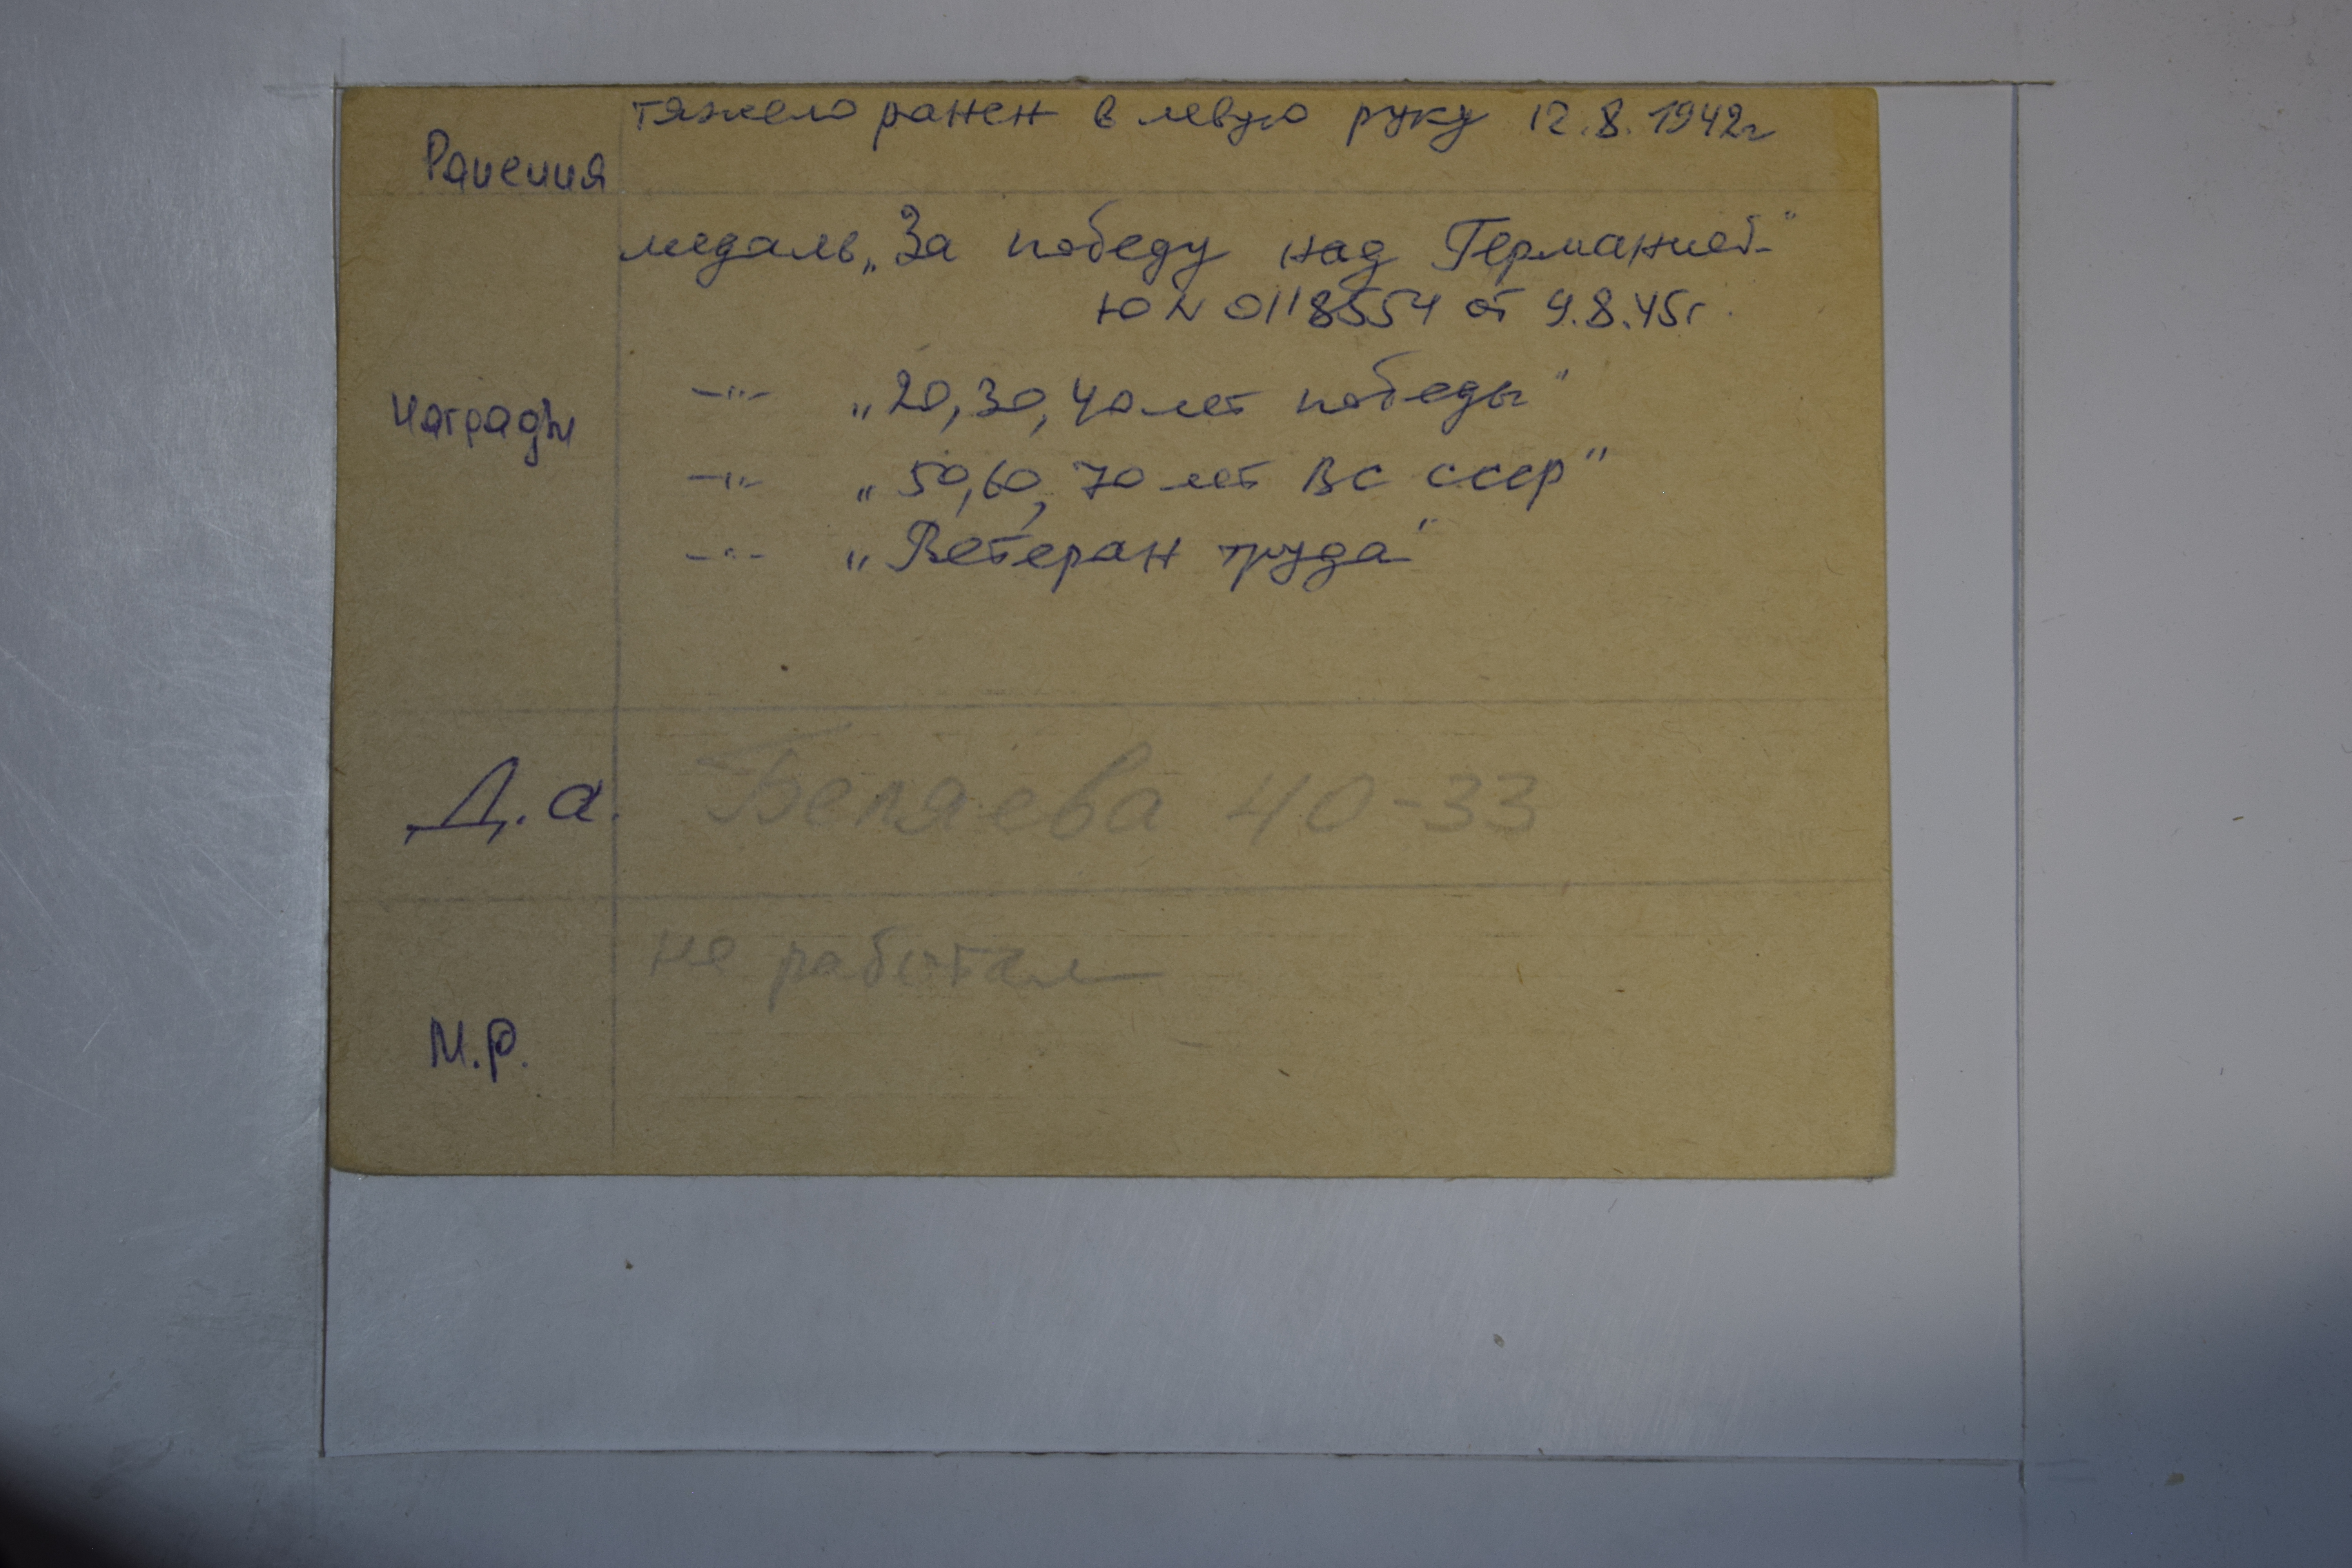 Ранения тяжело ранен в левую руку 12.8.1942г
медаль „За победу над Германией"
Ю N 0118554 от 9.8.45г.
Награды —"— „20, 30, 40 лет победы"
—"— „50, 60, 70 лет ВС СССР"
—"— „Ветеран труда"
Д.а. Беляева 40-33
не работал
М.Р.